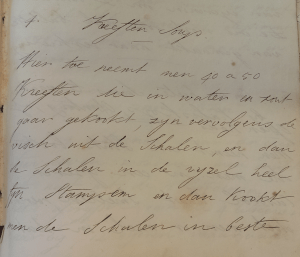 4. Kreeften Soup
Hier toe neemt men 40 a 50
Kreeften die in water en zout
gaar gekookt, zyn vervolgens de
visch uit de Schalen, en dan
de Schalen in de vyzel heel
fyn Stampen en dan Kookt
men de Schalen in beste